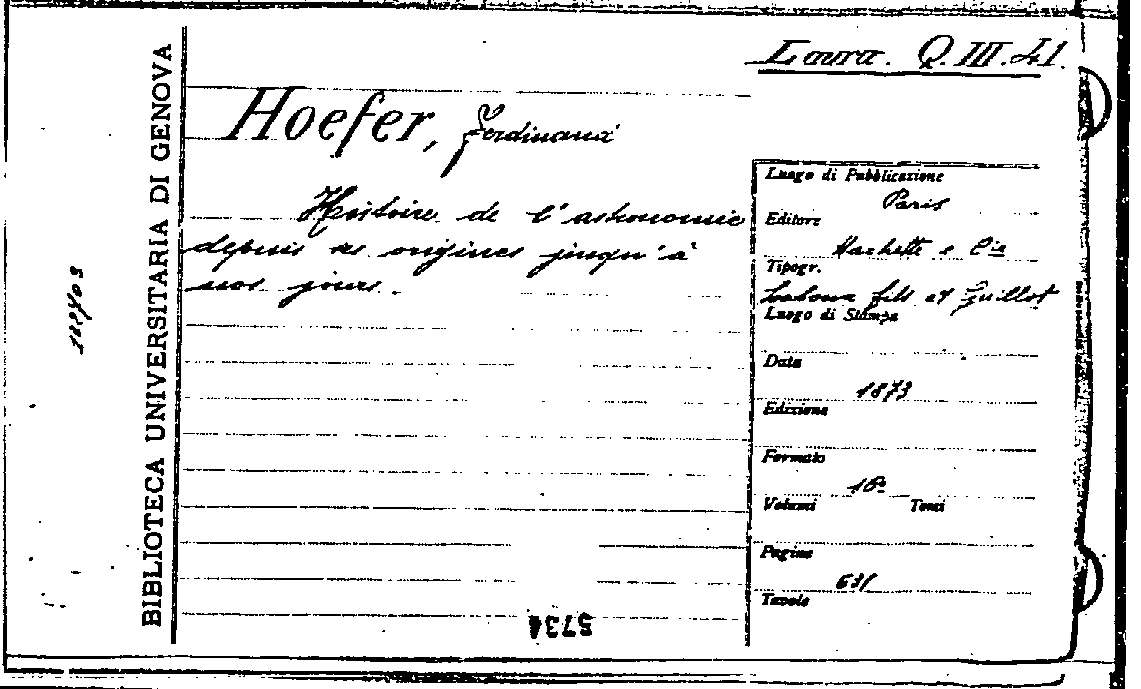 Laura. Q.III.41.
Hoefer, Ferdinand
Histoire de l'astronomie
depuis ses origines jusqu'à
nos jours.
BIBLIOTECA UNIVERSITARIA DI GENOVA
Luogo di Pubblicazione
Paris
Editore
Hachette e Cie
Tipogr.
fils et Guillot
Luogo di Stampa
Data
1873
Edizione
Formato
16°
Volumi Tomi
Pagine
631
Tavole
5734